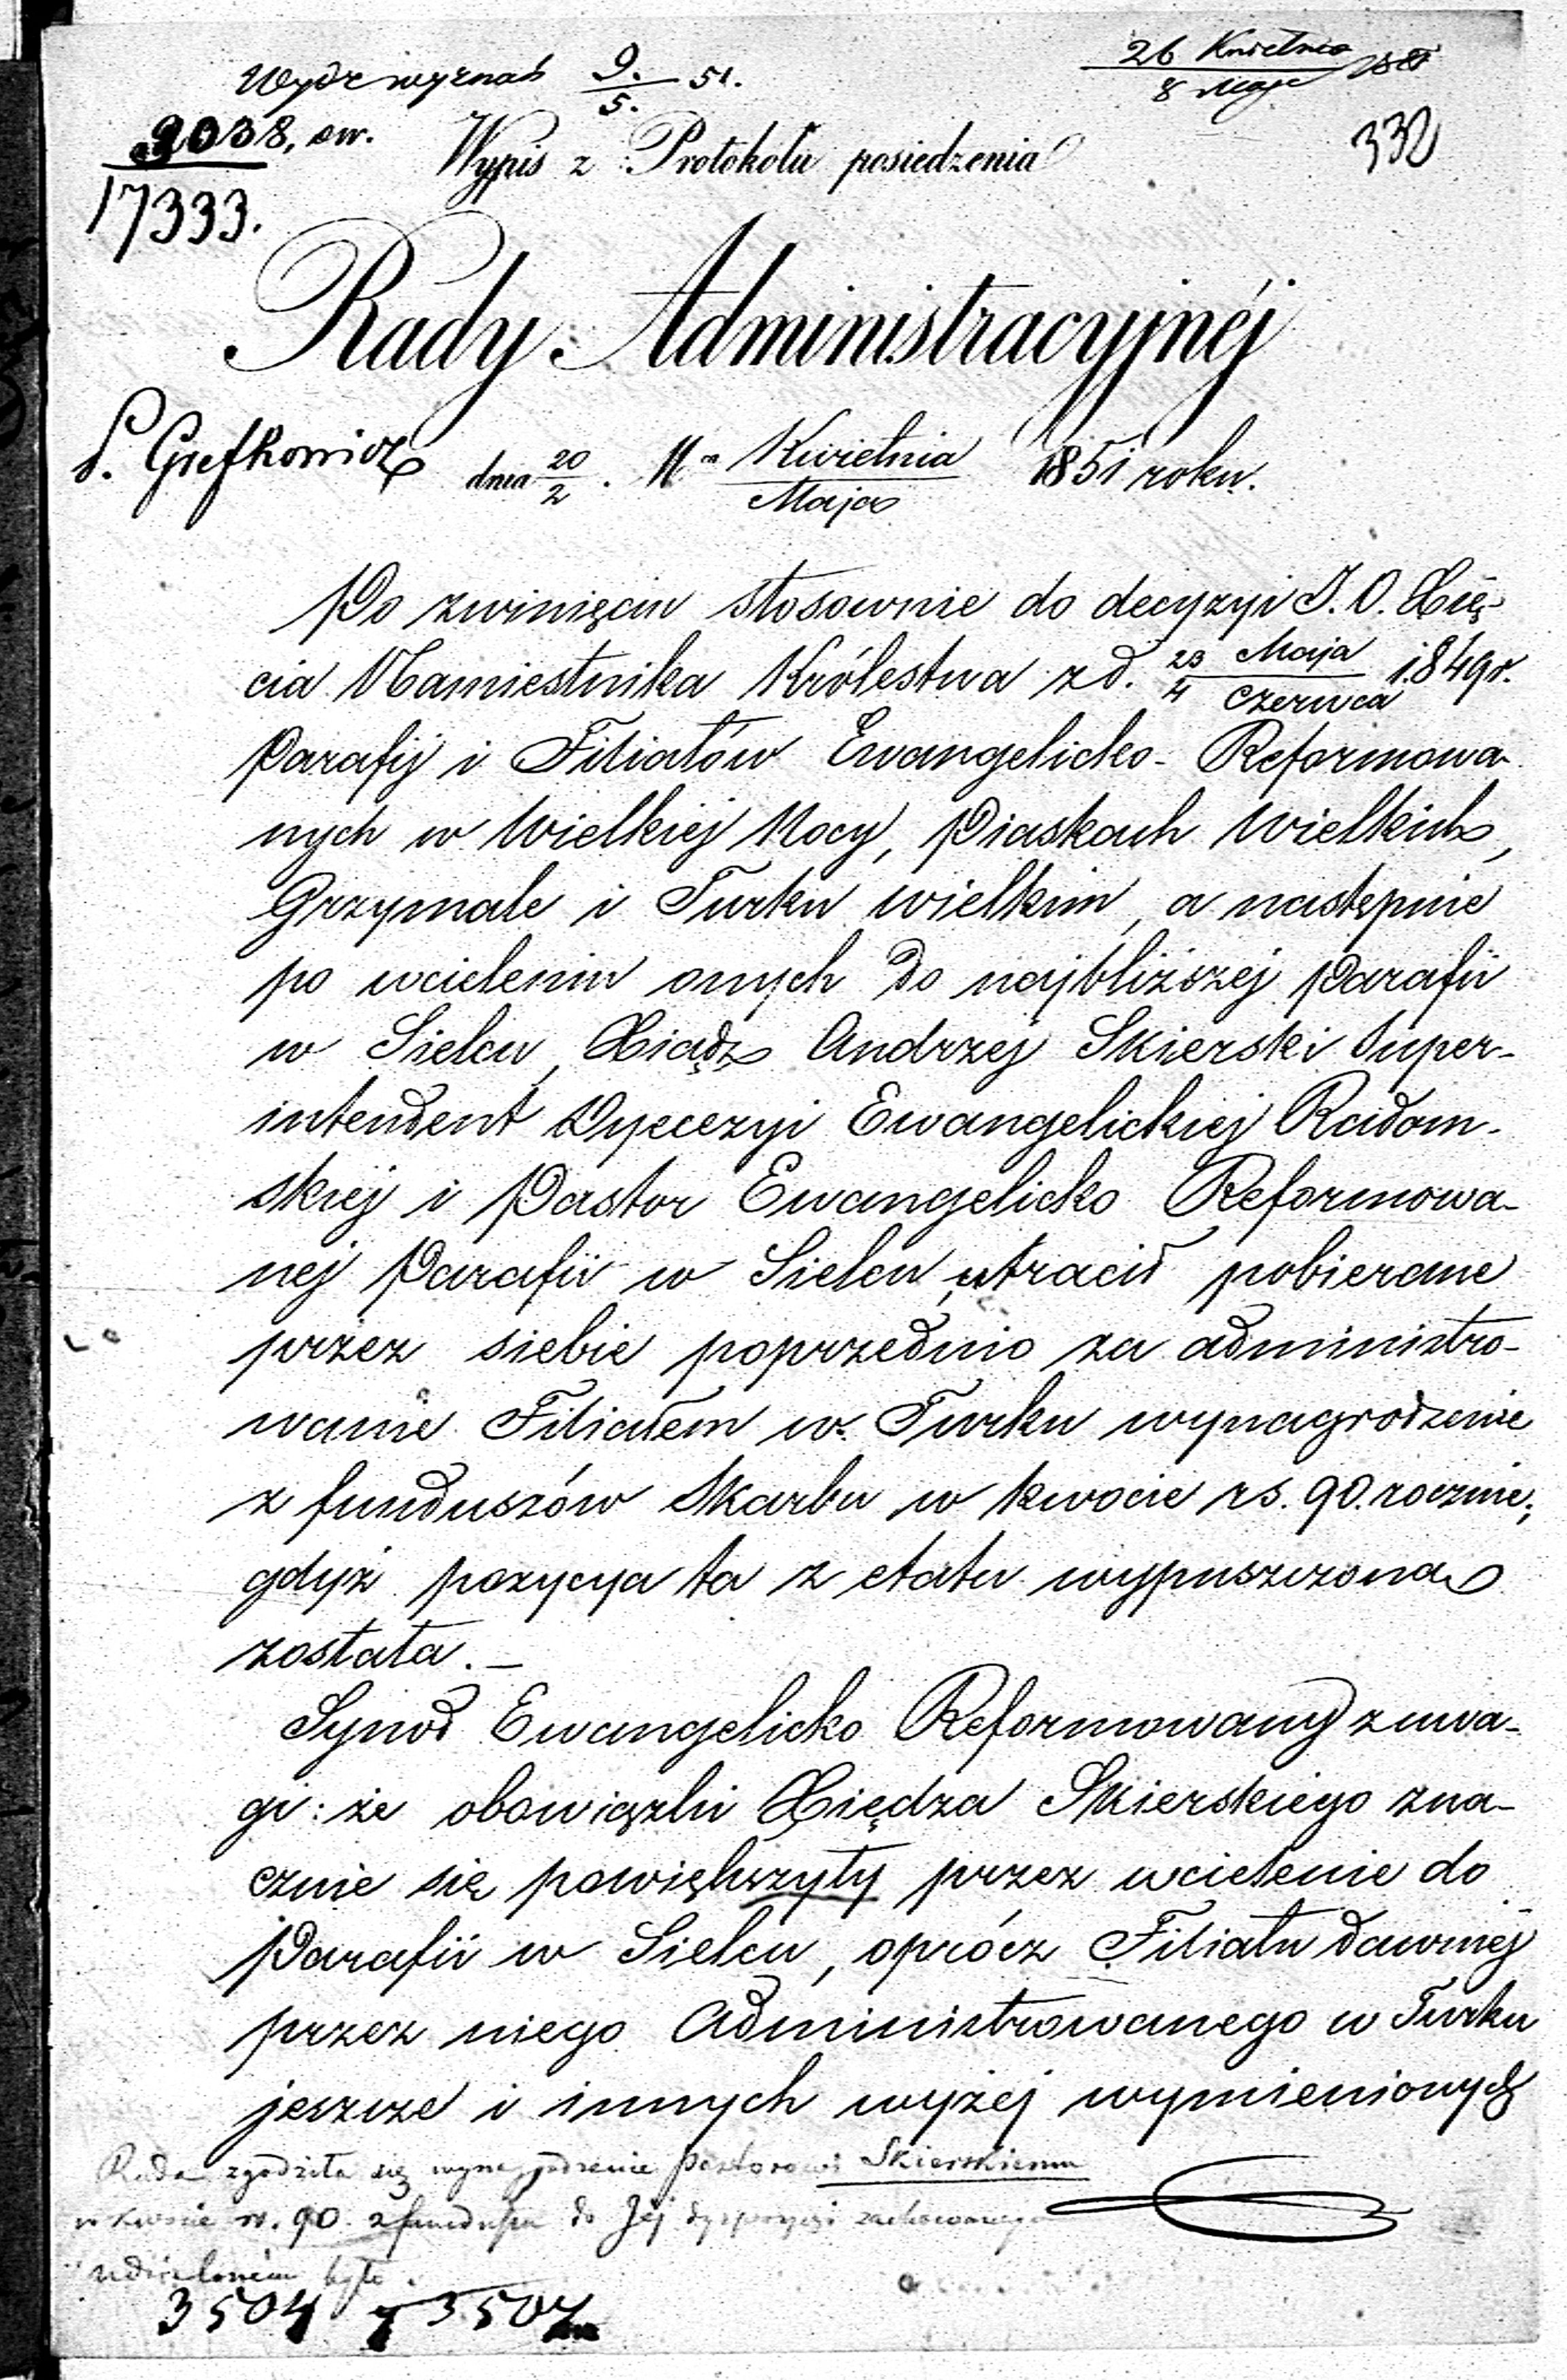 Wydz wyznań 9./5. 51.
26 Kwietnia/8 Maja 1851
9038, sw.
17333.
332
Wypis z Protokółu posiedzenia
Rady Administracyjnéj
P. Grefkowicz
dnia 20/2. Kwietnia/Maja 1851 roku.
Po zwinięciu stosownie do decyzyi J. O. Xię-
cia Namiestnika Królestwa z d. 23 Maja/4 Czerwca 1849 r.
Parafij i Filiałów Ewangelicko-Reformowa-
nych w Wielkiej Nocy, Piaskach Wielkich,
Grzymale i Turku wielkim, a następnie
po wcieleniu onych do najbliższej Parafii
w Sielcu, Xiądz Andrzej Skierski Super-
intendent Dyecezyi Ewangelickiej Radom-
skiej i Pastor Ewangelicko Reformowa-
nej Parafii w Sielcu, utracił pobierane
przez siebie poprzednio za administro-
wanie Filiałem w Turku wynagrodzenie
z funduszów Skarbu w kwocie rs. 90. rocznie;
gdyż pozycya ta z etatu wypuszczona
została. —
Synod Ewangelicko Reformowany z uwa-
gi: że obowiązki Xiędza Skierskiego zna-
cznie się powiększyły przez wcielenie do
Parafii w Sielcu, oprócz Filiału dawniej
przez niego Administrowanego w Turku
jeszcze i innych wyżej wymienionych
Rada zgodziła się wynagrodzenie Pastorowi Skierskiemu
w kwocie rs. 90 z funduszu do Jej dyspozycyi zachowanego
udzieloném było.
3504 3507